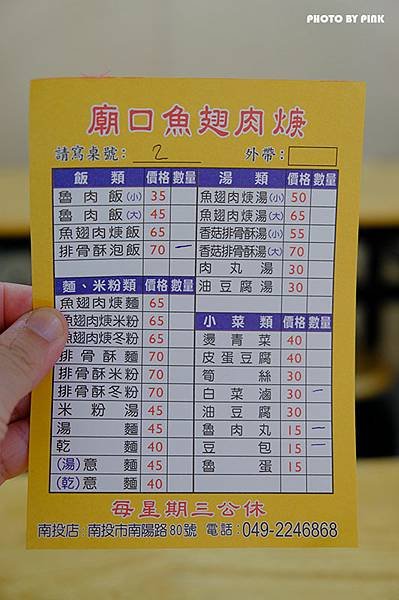 PHOTO BY PINK
廟口魚翅肉焿
請寫桌號：2 外帶：
飯類 價格 數量
魯肉飯(小) 35
魯肉飯(大) 45
魚翅肉焿飯 65
排骨酥泡飯 70 一
麵、米粉類 價格 數量
魚翅肉焿麵 65
魚翅肉焿米粉 65
魚翅肉焿冬粉 65
排骨酥麵 70
排骨酥米粉 70
排骨酥冬粉 70
米粉湯 45
湯麵 45
乾麵 40
(湯)意麵 45
(乾)意麵 40
湯類 價格 數量
魚翅肉焿湯(小) 50
魚翅肉焿湯(大) 65
香菇排骨酥湯(小) 55
香菇排骨酥湯(大) 70
肉丸湯 30
油豆腐湯 30
小菜類 價格 數量
燙青菜 40
皮蛋豆腐 40
筍絲 30
白菜滷 30 一
油豆腐 30
魯肉丸 15 一
豆包 15 一
魯蛋 15
每星期三公休
南投店 南投市南陽路80號 電話：049-2246868